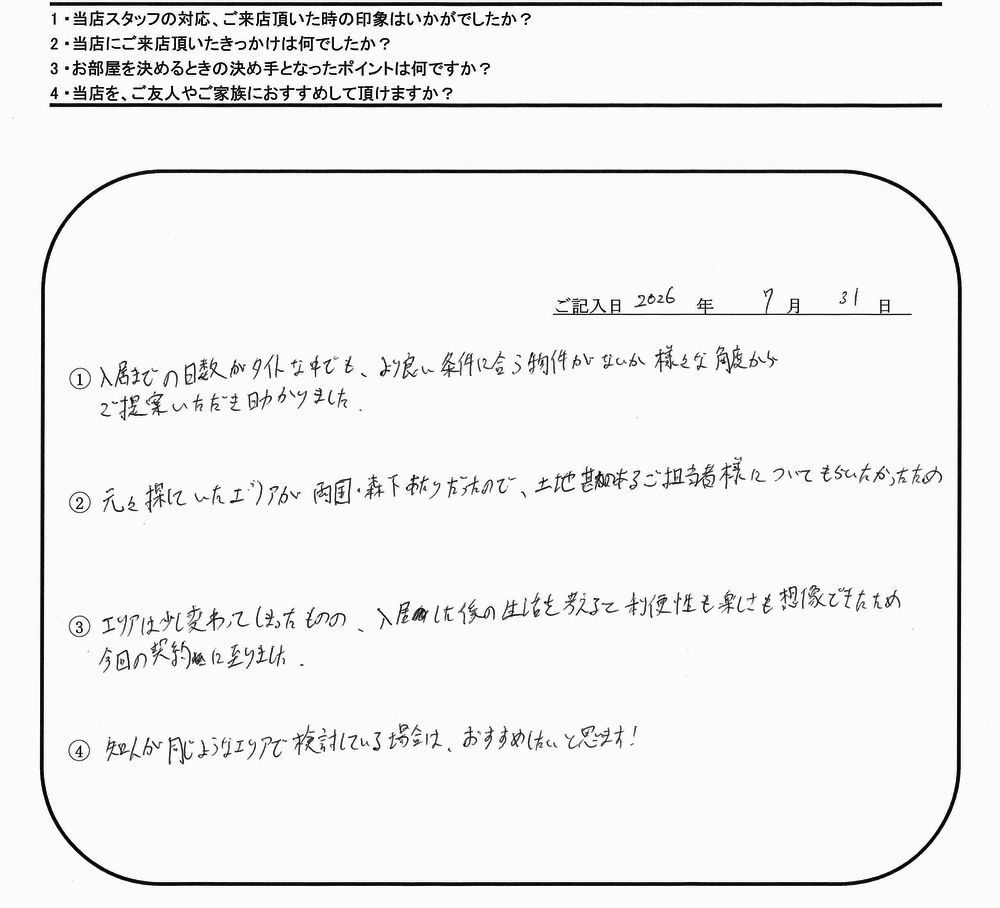 1・当店スタッフの対応、ご来店頂いた時の印象はいかがでしたか？
2・当店にご来店頂いたきっかけは何でしたか？
3・お部屋を決めるときの決め手となったポイントは何ですか？
4・当店を、ご友人やご家族におすすめして頂けますか？
ご記入日 2026 年 7 月 31 日
① 入居までの日数がタイトな中でも、より良い条件に合う物件がないか 様々な角度から
ご提案いただき助かりました.
② 元々探していたエリアが 両国・森下あたりだったので、土地勘のあるご担当者様についてもらいたかったため
③ エリアは少し変わってしまったものの、入居した後の生活を考えるて利便性も楽しさも想像できたため
今回の契約に至りました.
④ 知人が同じようなエリアで検討している場合は、おすすめしたいと思います!